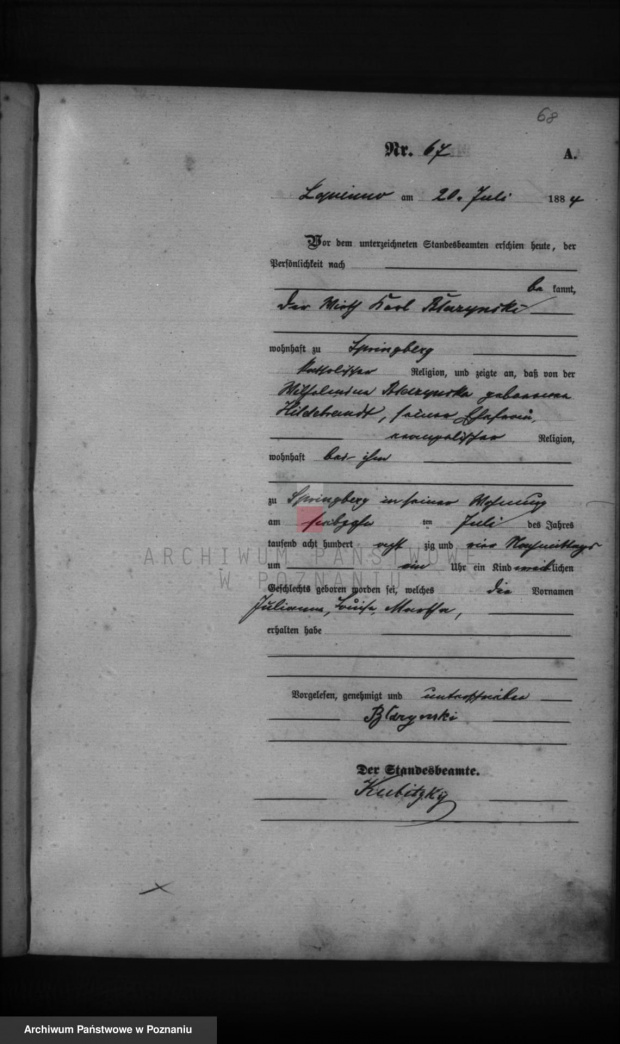 68
Nr. 67
A.
Lopienno am 20. Juli 1884
Vor dem unterzeichneten Standesbeamten erschien heute, der
Persönlichkeit nach
be kannt,
der Wirth Karl
wohnhaft zu Springberg
katholischer Religion, und zeigte an, daß von der
Wilhelmine geborene
Hildebrandt, seiner Ehefrau,
evangelischer Religion,
wohnhaft bei ihm
zu Springberg in seiner Wohnung
am ten Juli des Jahres
tausend acht hundert acht zig und vier Nachmittags
um ein Uhr ein Kind weiblichen
Geschlechts geboren worden sei, welches die Vornamen
Julianna, Louise, Martha,
erhalten habe
Vorgelesen, genehmigt und unterschrieben
Der Standesbeamte.
Kubitzky
ARCHIWUM PAŃSTWOWE
W POZNANIU
Archiwum Państwowe w Poznaniu